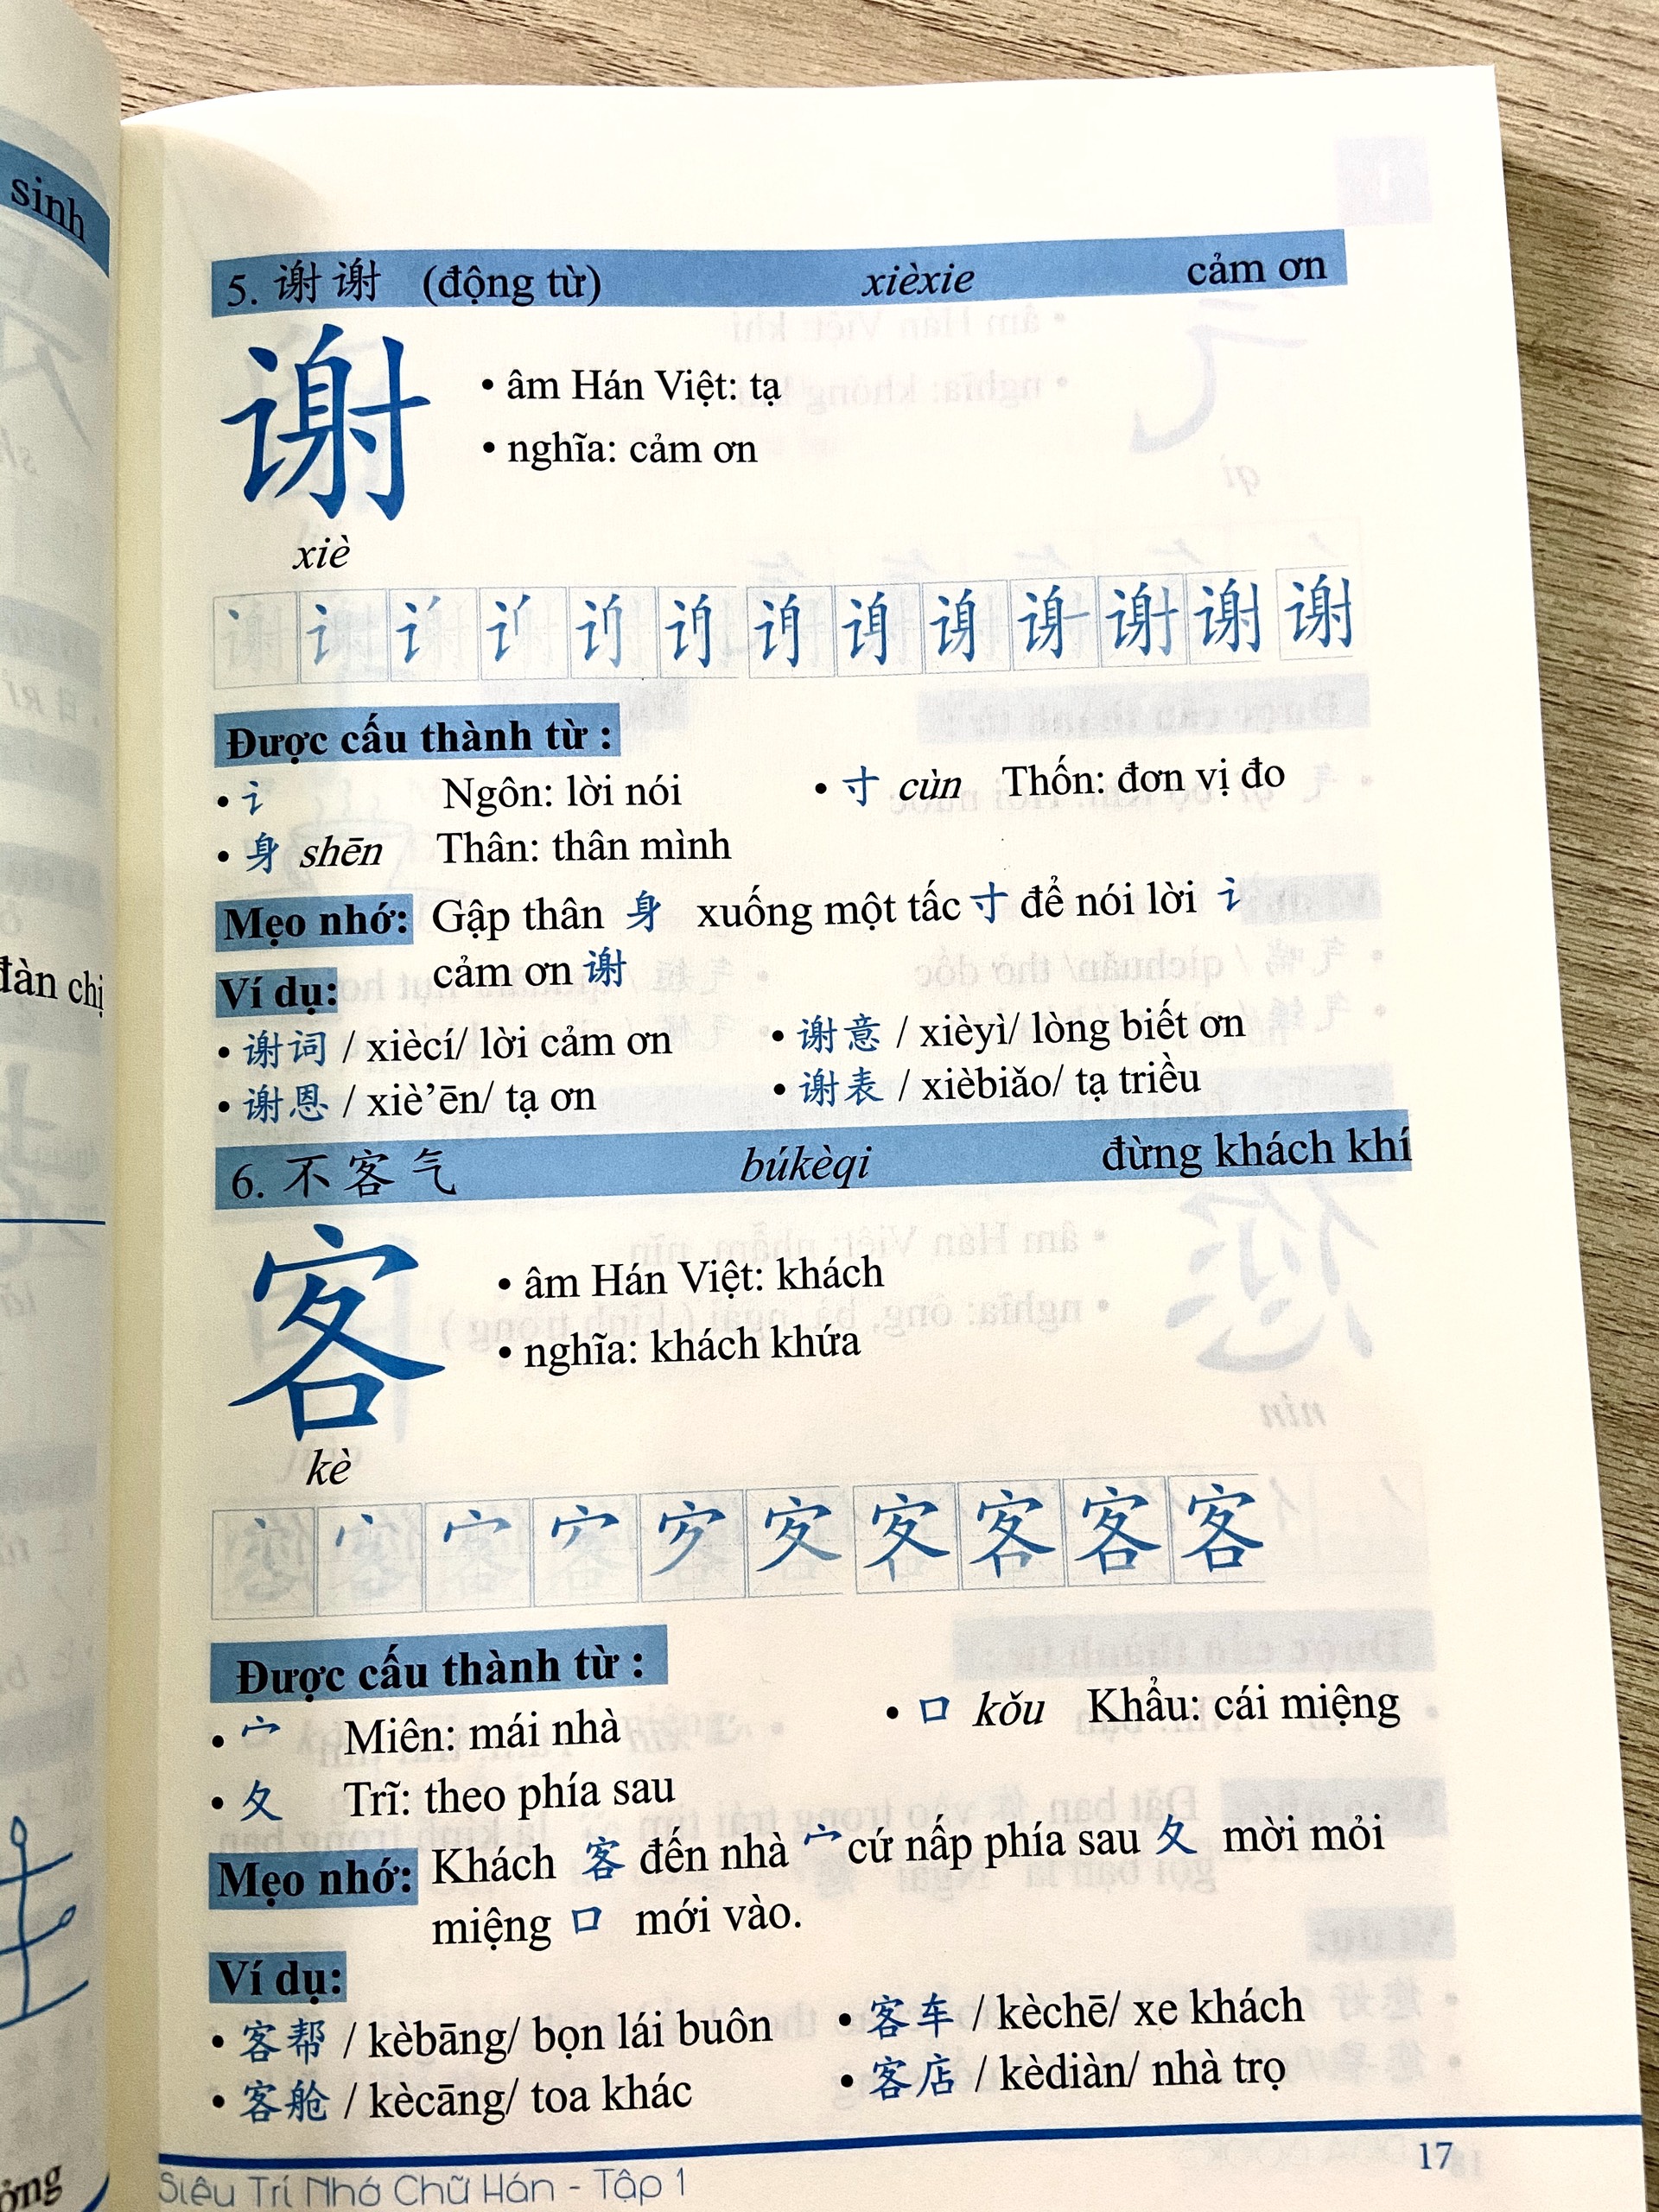 sinh
đàn chị
5. 谢谢 (động từ) xièxie cảm ơn
谢
• âm Hán Việt: tạ
• nghĩa: cảm ơn
xiè
谢 谢
Được cấu thành từ :
• 讠 Ngôn: lời nói • 寸 cùn Thốn: đơn vị đo
• 身 shēn Thân: thân mình
Mẹo nhớ: Gập thân 身 xuống một tấc 寸 để nói lời 讠
cảm ơn 谢
Ví dụ:
• 谢词 / xiècí/ lời cảm ơn • 谢意 / xièyì/ lòng biết ơn
• 谢恩 / xiè’ēn/ tạ ơn • 谢表 / xièbiǎo/ tạ triều
6. 不客气 búkèqi đừng khách khí
客
• âm Hán Việt: khách
• nghĩa: khách khứa
kè
客 客
Được cấu thành từ :
• 宀 Miên: mái nhà • 口 kǒu Khẩu: cái miệng
• 夂 Trĩ: theo phía sau
Mẹo nhớ: Khách 客 đến nhà 宀 cứ nấp phía sau 夂 mời mỏi
miệng 口 mới vào.
Ví dụ:
• 客帮 / kèbāng/ bọn lái buôn • 客车 / kèchē/ xe khách
• 客舱 / kècāng/ toa khác • 客店 / kèdiàn/ nhà trọ
17
Siêu Trí Nhớ Chữ Hán - Tập 1